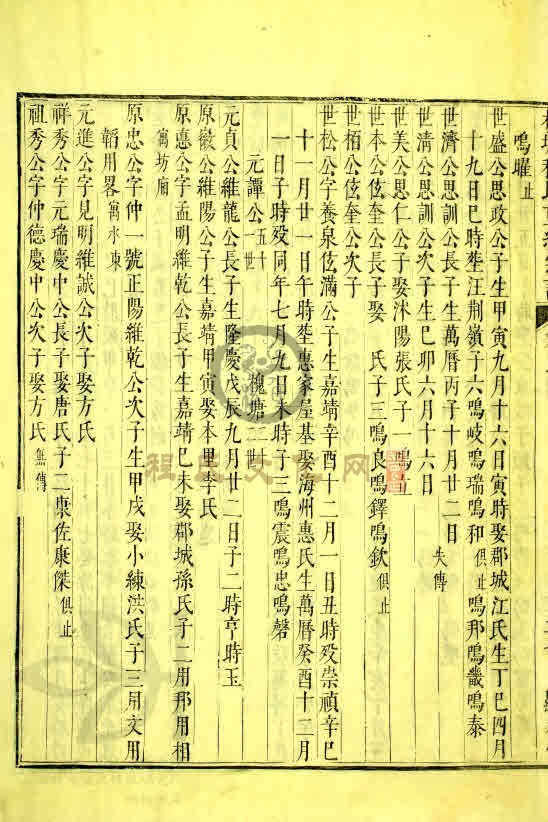 鳴曜止
世盛公思政公子生甲寅九月十六日寅時娶郡城江氏生丁巳四月
十九日巳時塟汪荆嶺子六鳴岐鳴瑞鳴和俱止鳴那鳴畿鳴泰
世濟公思訓公長子生萬曆丙子十月廿二日失傳
世清公思訓公次子生巳卯六月十六日
世美公思仁公子娶沭陽張氏子一鳴
世本公伭奎公長子娶 氏子三鳴良鳴鐸鳴欽俱止
世栢公伭奎公次子
世松公字養泉伭滿公子生嘉靖辛酉十二月一日丑時殁崇禎辛巳
十一月廿一日午時塟惠家屋基娶海州惠氏生萬曆癸酉十二月
一日子時殁同年七月九日未時子三鳴震鳴忠鳴磬
元譚公五十一世 槐塘二世
元貞公維龍公長子生隆慶戊辰九月廿二日子二時亨時玉
原徽公維陽公子生嘉靖甲寅娶本里李氏
原憲公字孟明維乾公長子生嘉靖巳未娶郡城孫氏子二用那用相
寓坊廂
原忠公字仲一號正陽維乾公次子生甲戌娶小練洪氏子三用文用
韜用畧寓水東
元進公字見明維誠公次子娶方氏
祥秀公字元瑞慶中公長子娶唐氏子二康佐康傑俱止
祖秀公字仲德慶中公次子娶方氏無傳
程氏文 网